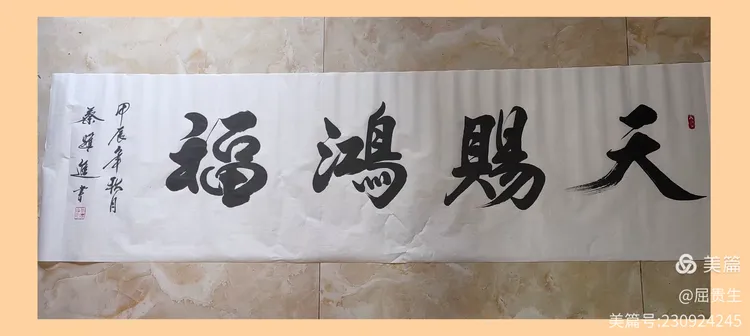 天赐鸿福
甲辰年秋月
蔡跃进书
美篇
@屈贵生
美篇号:230924245